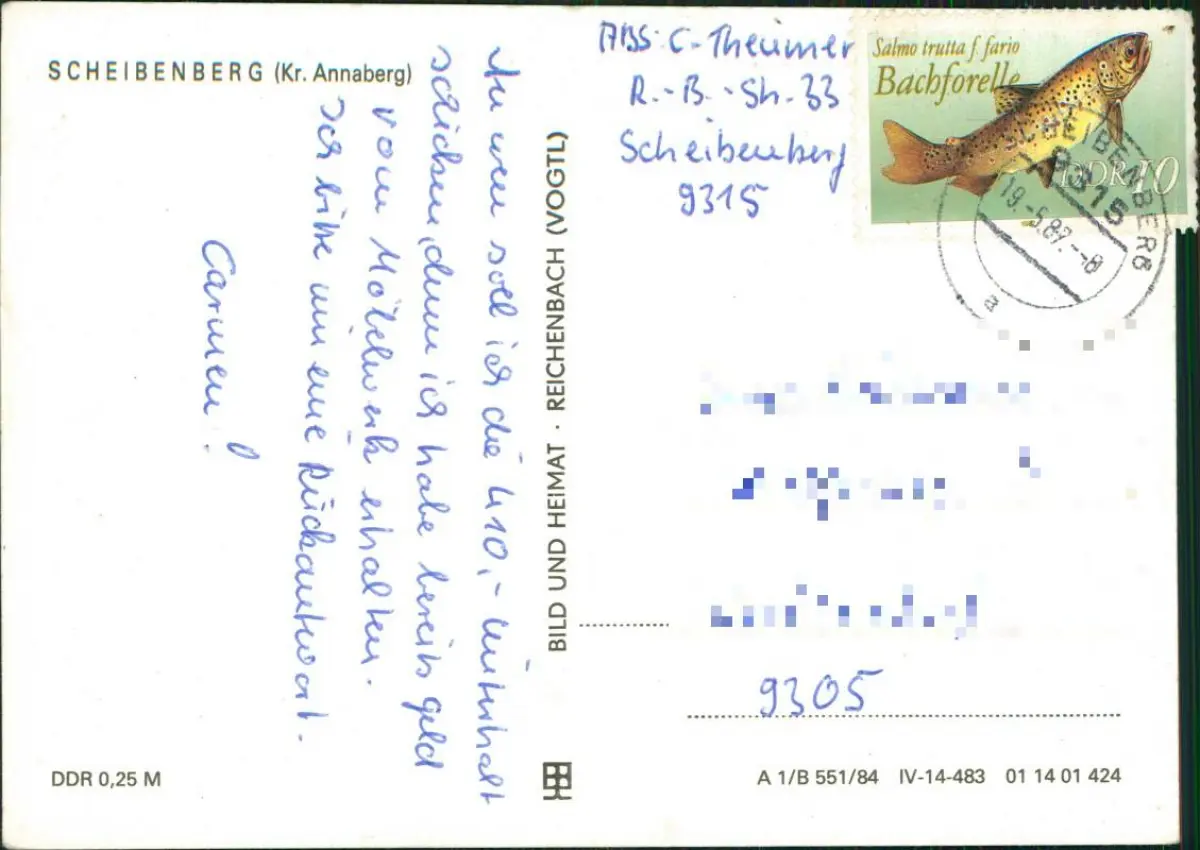 SCHEIBENBERG (Kr. Annaberg)
An wen soll ich die 410,- Unterhalt
schicken, denn ich habe bereits Geld
vom Möbelwerk erhalten.
Ich bitte um eine Rückantwort.
Carmen!
DDR 0,25 M
BILD UND HEIMAT · REICHENBACH (VOGTL)
ABS: C. Theumer
R.-B.-Str. 33
Scheibenberg
9315
Salmo trutta f. fario
Bachforelle
DDR 10
SCHEIBENBERG
9315
a
9305
A 1/B 551/84 IV-14-483 01 14 01 424